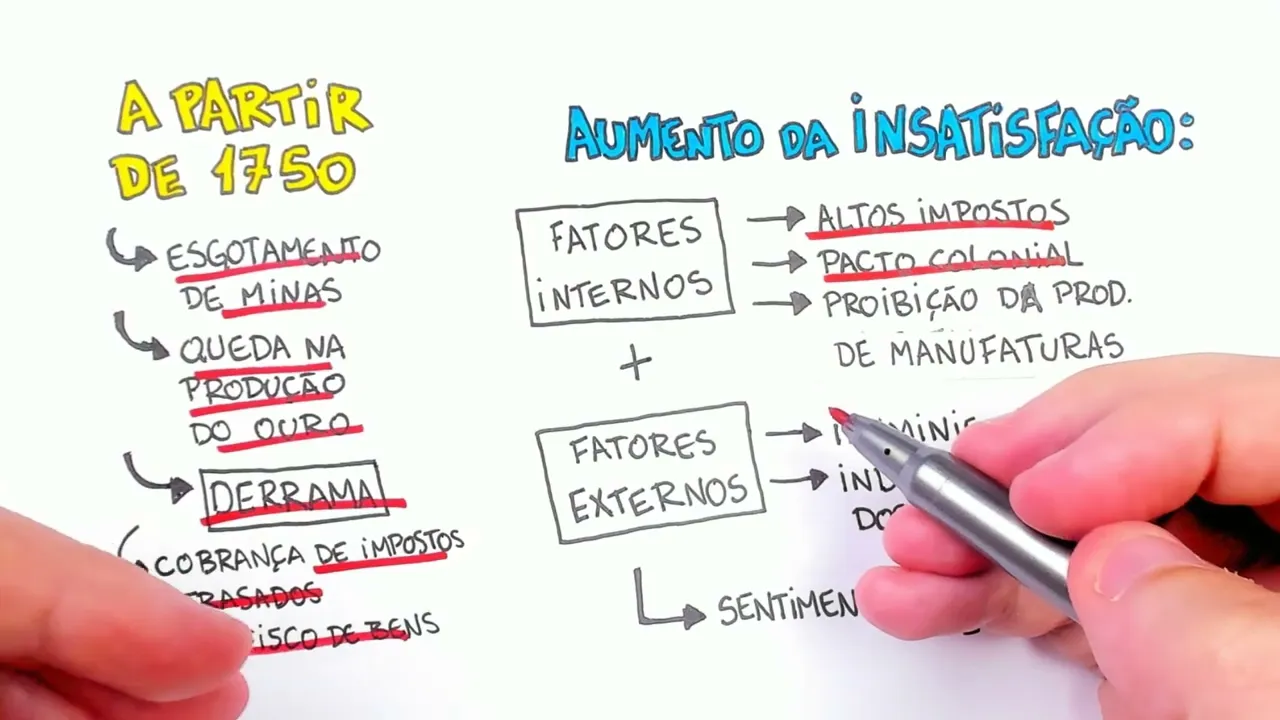 A PARTIR
DE 1750
ESGOTAMENTO
DE MINAS
QUEDA NA
PRODUÇÃO
DO OURO
DERRAMA
COBRANÇA DE IMPOSTOS
DE BENS
AUMENTO DA INSATISFAÇÃO:
FATORES
INTERNOS
ALTOS IMPOSTOS
PACTO COLONIAL
PROIBIÇÃO DA PROD.
DE MANUFATURAS
+
FATORES
EXTERNOS